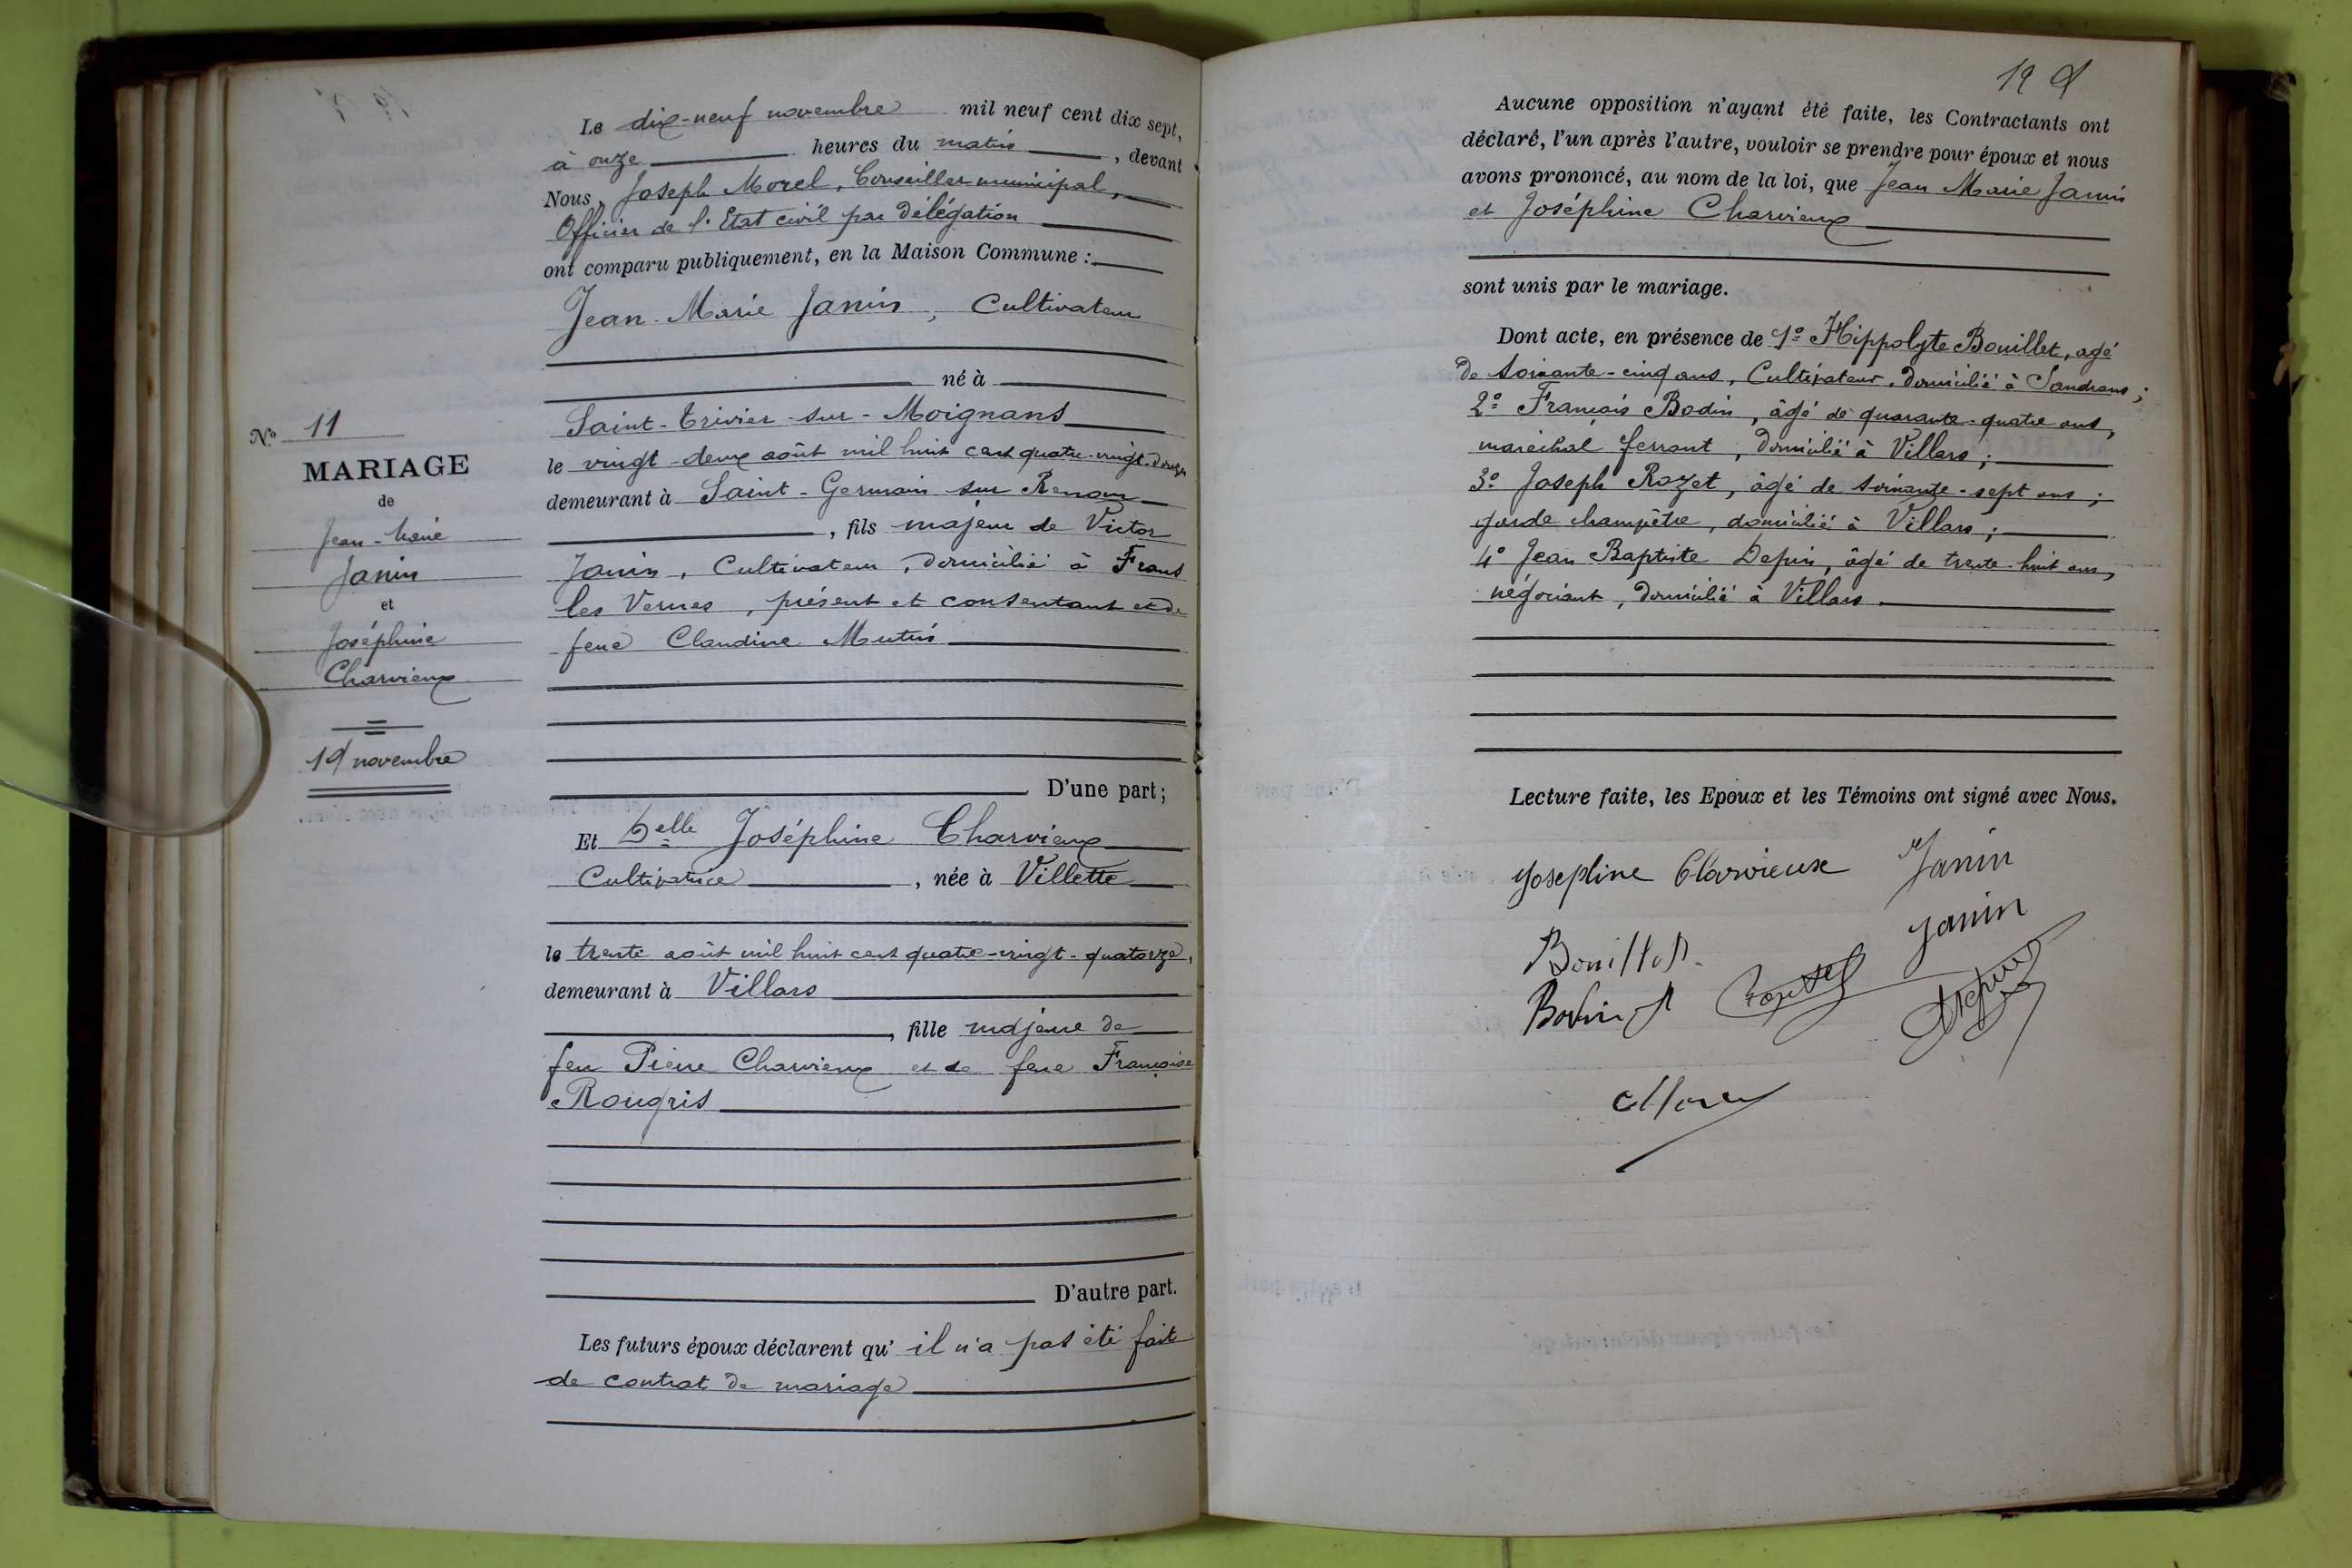 Le dix-neuf novembre mil neuf cent dix sept,
à onze heures du matin, devant
Nous, Joseph Morel, Conseiller municipal,
Officier de l'Etat civil par délégation
ont comparu publiquement, en la Maison Commune :
Jean-Marie Janin, Cultivateur
né à
Saint-Trivier-sur-Moignans
le vingt-deux août mil huit cent quatre-vingt-douze
demeurant à Saint-Germain sur Renom
, fils majeur de Victor
Janin, Cultivateur, domicilié à Frans
les Vernes, présent et consentant et de
feue Claudine Mutin
D'une part ;
Et Delle Joséphine Charvieux
Cultivatrice, née à Villette
le trente août mil huit cent quatre-vingt-quatorze,
demeurant à Villars
, fille majeure de
feu Pierre Charvieux et de feue Françoise
Rougris
D'autre part.
Les futurs époux déclarent qu'il n'a pas été fait
de contrat de mariage
No 11
MARIAGE
de
Jean-Marie
Janin
et
Joséphine
Charvieux
19 novembre
19
Aucune opposition n'ayant été faite, les Contractants ont
déclaré, l'un après l'autre, vouloir se prendre pour époux et nous
avons prononcé, au nom de la loi, que Jean Marie Janin
et Joséphine Charvieux
sont unis par le mariage.
Dont acte, en présence de 1º Hippolyte Bouillet, agé
de soixante-cinq ans, Cultivateur, domicilié à Sandrans ;
2º François Bodin, âgé de quarante-quatre ans,
maréchal ferrant, domicilié à Villars ;
3º Joseph Rozet, âgé de soixante-sept ans ;
garde champêtre, domicilié à Villars ;
4º Jean Baptiste Depin, âgé de trente-huit ans,
négociant, domicilié à Villars.
Lecture faite, les Epoux et les Témoins ont signé avec Nous.
Josephine Charvieux Janin
Janin
Bouillet
Bodin